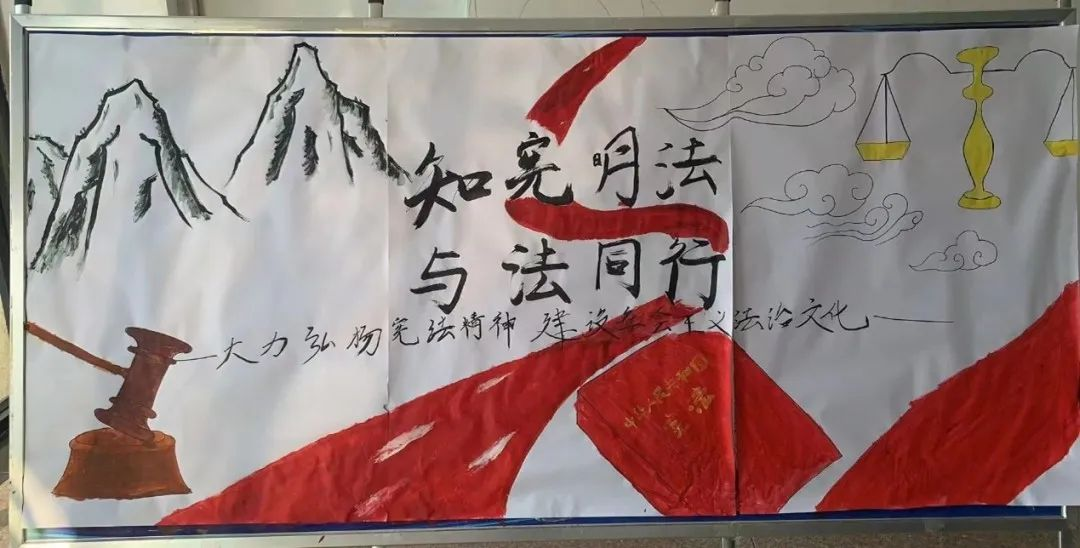 知宪明法
与法同行
大力弘扬宪法精神 建设社会主义法治文化
中华人民共和国
宪法